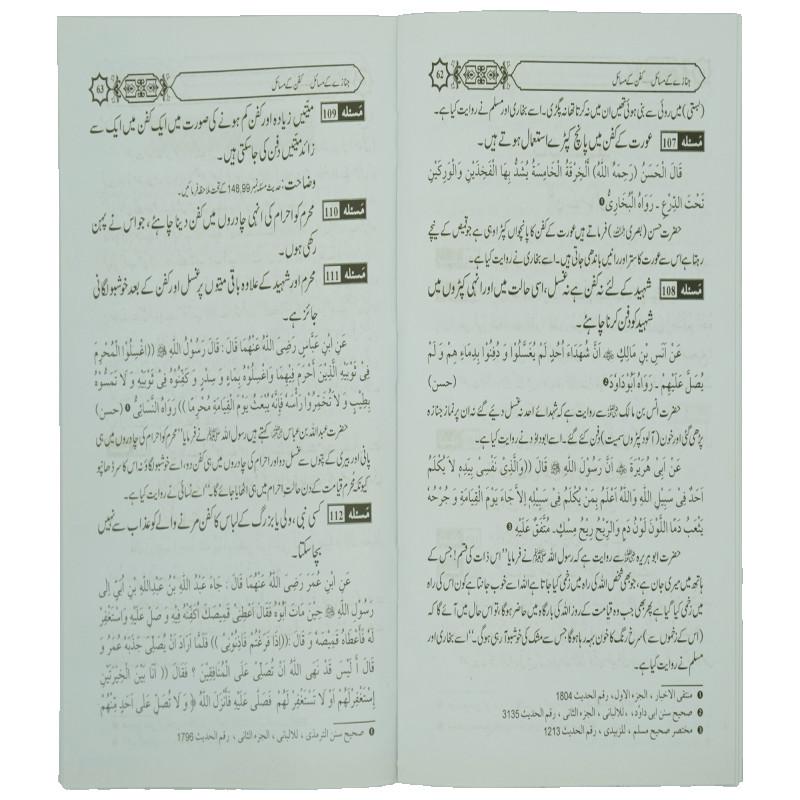 جنازے کے مسائل ... کفن کے مسائل
62
(بستی) میں روئی سے بنی ہوئی تھیں ان میں نہ کرتا تھا نہ پگڑی۔ اسے بخاری اور مسلم نے روایت کیا ہے۔
مسئله 107 عورت کے کفن میں پانچ کپڑے استعمال ہوتے ہیں۔
قَالَ الْحَسَنُ (رَحِمَهُ اللّٰهُ) اَلْخِرْقَةُ الْخَامِسَةُ يُشَدُّ بِهَا الْفَخِذَيْنِ وَالْوَرِكَيْنِ
تَحْتَ الدِّرْعِ ۔ رَوَاهُ الْبُخَارِىُّ ❶
حضرت حسن (بصری رحمہ اللہ) فرماتے ہیں عورت کے کفن کا پانچواں کپڑا وہی ہے جو قمیص کے نیچے
رہتا ہے اس سے عورت کا ستر اور رانیں باندھی جاتی ہیں۔ اسے بخاری نے روایت کیا ہے۔
مسئله 108 شہید کے لئے نہ کفن ہے نہ غسل، اسی حالت میں اور انہی کپڑوں میں
شہید کو دفن کرنا چاہئے۔
عَنْ اَنَسِ بْنِ مَالِكٍ ﷺ اَنَّ شُهَدَاءَ اُحُدٍ لَمْ يُغَسَّلُوْا وَ دُفِنُوْا بِدِمَاءِ هِمْ وَ لَمْ
يُصَلَّ عَلَيْهِمْ ۔ رَوَاهُ اَبُوْدَاوُدَ ❷ (حسن)
حضرت انس بن مالک رضی اللہ عنہ سے روایت ہے کہ شہدائے احد نہ غسل دیئے گئے نہ ان پر نماز جنازہ
پڑھی گئی اور خون (آلود کپڑوں سمیت) دفن کئے گئے۔ اسے ابوداؤد نے روایت کیا ہے۔
عَنْ اَبِىْ هُرَيْرَةَ اَنَّ رَسُوْلَ اللّٰهِ ﷺ قَالَ ((وَالَّذِىْ نَفْسِىْ بِيَدِهِ لَا يُكْلَمُ
اَحَدٌ فِىْ سَبِيْلِ اللّٰهِ وَاللّٰهُ اَعْلَمُ بِمَنْ يُكْلَمُ فِىْ سَبِيْلِهِ اِلَّا جَاءَ يَوْمَ الْقِيَامَةِ وَ جُرْحُهُ
يَثْعَبُ دَمًا اللَّوْنُ لَوْنُ دَمٍ وَالرِّيْحُ رِيْحُ مِسْكٍ۔ مُتَّفَقٌ عَلَيْهِ ❸
حضرت ابو ہریرہ رضی اللہ عنہ سے روایت ہے کہ رسول اللہ ﷺ نے فرمایا ”اس ذات کی قسم! جس کے
ہاتھ میں میری جان ہے، جو بھی شخص اللہ کی راہ میں زخمی کیا جاتا ہے اللہ اسے خوب جانتا ہے کون اس کی راہ
میں زخمی کیا گیا ہے پھر بھی جب وہ قیامت کے روز اللہ کی بارگاہ میں حاضر ہوگا، تو اس حال میں آئے گا کہ
(اس کے زخموں سے) سرخ رنگ کا خون بہہ رہا ہوگا جس سے مشک کی خوشبو آ رہی ہوگی۔“ اسے بخاری اور
مسلم نے روایت کیا ہے۔
❶ منتقى الاخبار ، الجزء الاول، رقم الحديث 1804
❷ صحيح سنن ابى داؤد، للالبانى ، الجزء الثانى ، رقم الحديث 3135
❸ مختصر صحيح مسلم ، للزبيدى ، رقم الحديث 1213
جنازے کے مسائل ... کفن کے مسائل
63
مسئله 109 میتیں زیادہ اور کفن کم ہونے کی صورت میں ایک کفن میں ایک سے
زائد میتیں دفن کی جا سکتی ہیں۔
وضاحت: حدیث مسئلہ نمبر 148,99 کے تحت ملاحظہ فرمائیں۔
مسئله 110 محرم کو احرام کی انہی چادروں میں کفن دینا چاہئے، جو اس نے پہن
رکھی ہوں۔
مسئله 111 محرم اور شہید کے علاوہ باقی میتوں پر غسل اور کفن کے بعد خوشبو لگانی
جائز ہے۔
عَنِ ابْنِ عَبَّاسٍ رَضِىَ اللّٰهُ عَنْهُمَا قَالَ : قَالَ رَسُوْلُ اللّٰهِ ﷺ ((اغْسِلُوْا الْمُحْرِمَ
فِىْ ثَوْبَيْهِ الَّذَيْنِ اَحْرَمَ فِيْهِمَا وَاغْسِلُوْهُ بِمَاءٍ وَ سِدْرٍ وَ كَفِّنُوْهُ فِىْ ثَوْبَيْهِ وَ لَا تُمِسُّوْهُ
بِطِيْبٍ وَ لَا تُخَمِّرُوْا رَاْسَهُ فَاِنَّهُ يُبْعَثُ يَوْمَ الْقِيَامَةِ مُحْرِمًا)) رَوَاهُ النَّسَائِىُّ (حسن)
حضرت عبداللہ بن عباس رضی اللہ عنہما کہتے ہیں رسول اللہ ﷺ نے فرمایا ”محرم کو احرام کی چادروں میں ہی
پانی اور بیری کے پتوں سے غسل دو اور احرام کی چادروں میں ہی کفن دو، اسے خوشبو نہ لگاؤ نہ اس کا سر ڈھانپو
کیونکہ محرم قیامت کے دن حالت احرام میں ہی اٹھایا جائے گا۔“ اسے نسائی نے روایت کیا ہے۔
مسئله 112 کسی نبی، ولی یا بزرگ کے لباس کا کفن مرنے والے کو عذاب سے نہیں
بچا سکتا۔
عَنِ ابْنِ عُمَرَ رَضِىَ اللّٰهُ عَنْهُمَا قَالَ : جَاءَ عَبْدُ اللّٰهِ بْنُ عَبْدِاللّٰهِ بْنِ اُبَىٍّ اِلٰى
رَسُوْلِ اللّٰهِ ﷺ حِيْنَ مَاتَ اَبُوْهُ فَقَالَ اَعْطِنِىْ قَمِيْصَكَ اُكَفِّنْهُ فِيْهِ وَ صَلِّ عَلَيْهِ وَاسْتَغْفِرْ
لَهُ فَاَعْطَاهُ قَمِيْصَهُ وَ قَالَ ((اِذَا فَرَغْتُمْ فَآذِنُوْنِىْ )) فَلَمَّا اَرَادَ اَنْ يُصَلِّىَ جَذَبَهُ عُمَرُ وَ
قَالَ اَ لَيْسَ قَدْ نَهَى اللّٰهُ اَنْ تُصَلِّىَ عَلَى الْمُنَافِقِيْنَ ؟ فَقَالَ (( اَنَا بَيْنَ الْخِيَرَتَيْنِ
اِسْتَغْفِرْ لَهُمْ اَوْ لَا تَسْتَغْفِرْ لَهُمْ فَصَلّٰى عَلَيْهِ فَاَنْزَلَ اللّٰهُ ﴿ وَ لَا تُصَلِّ عَلٰى اَحَدٍ مِّنْهُمْ
❶ صحيح سنن الترمذى ، للالبانى ، الجزء الثانى ، رقم الحديث 1796